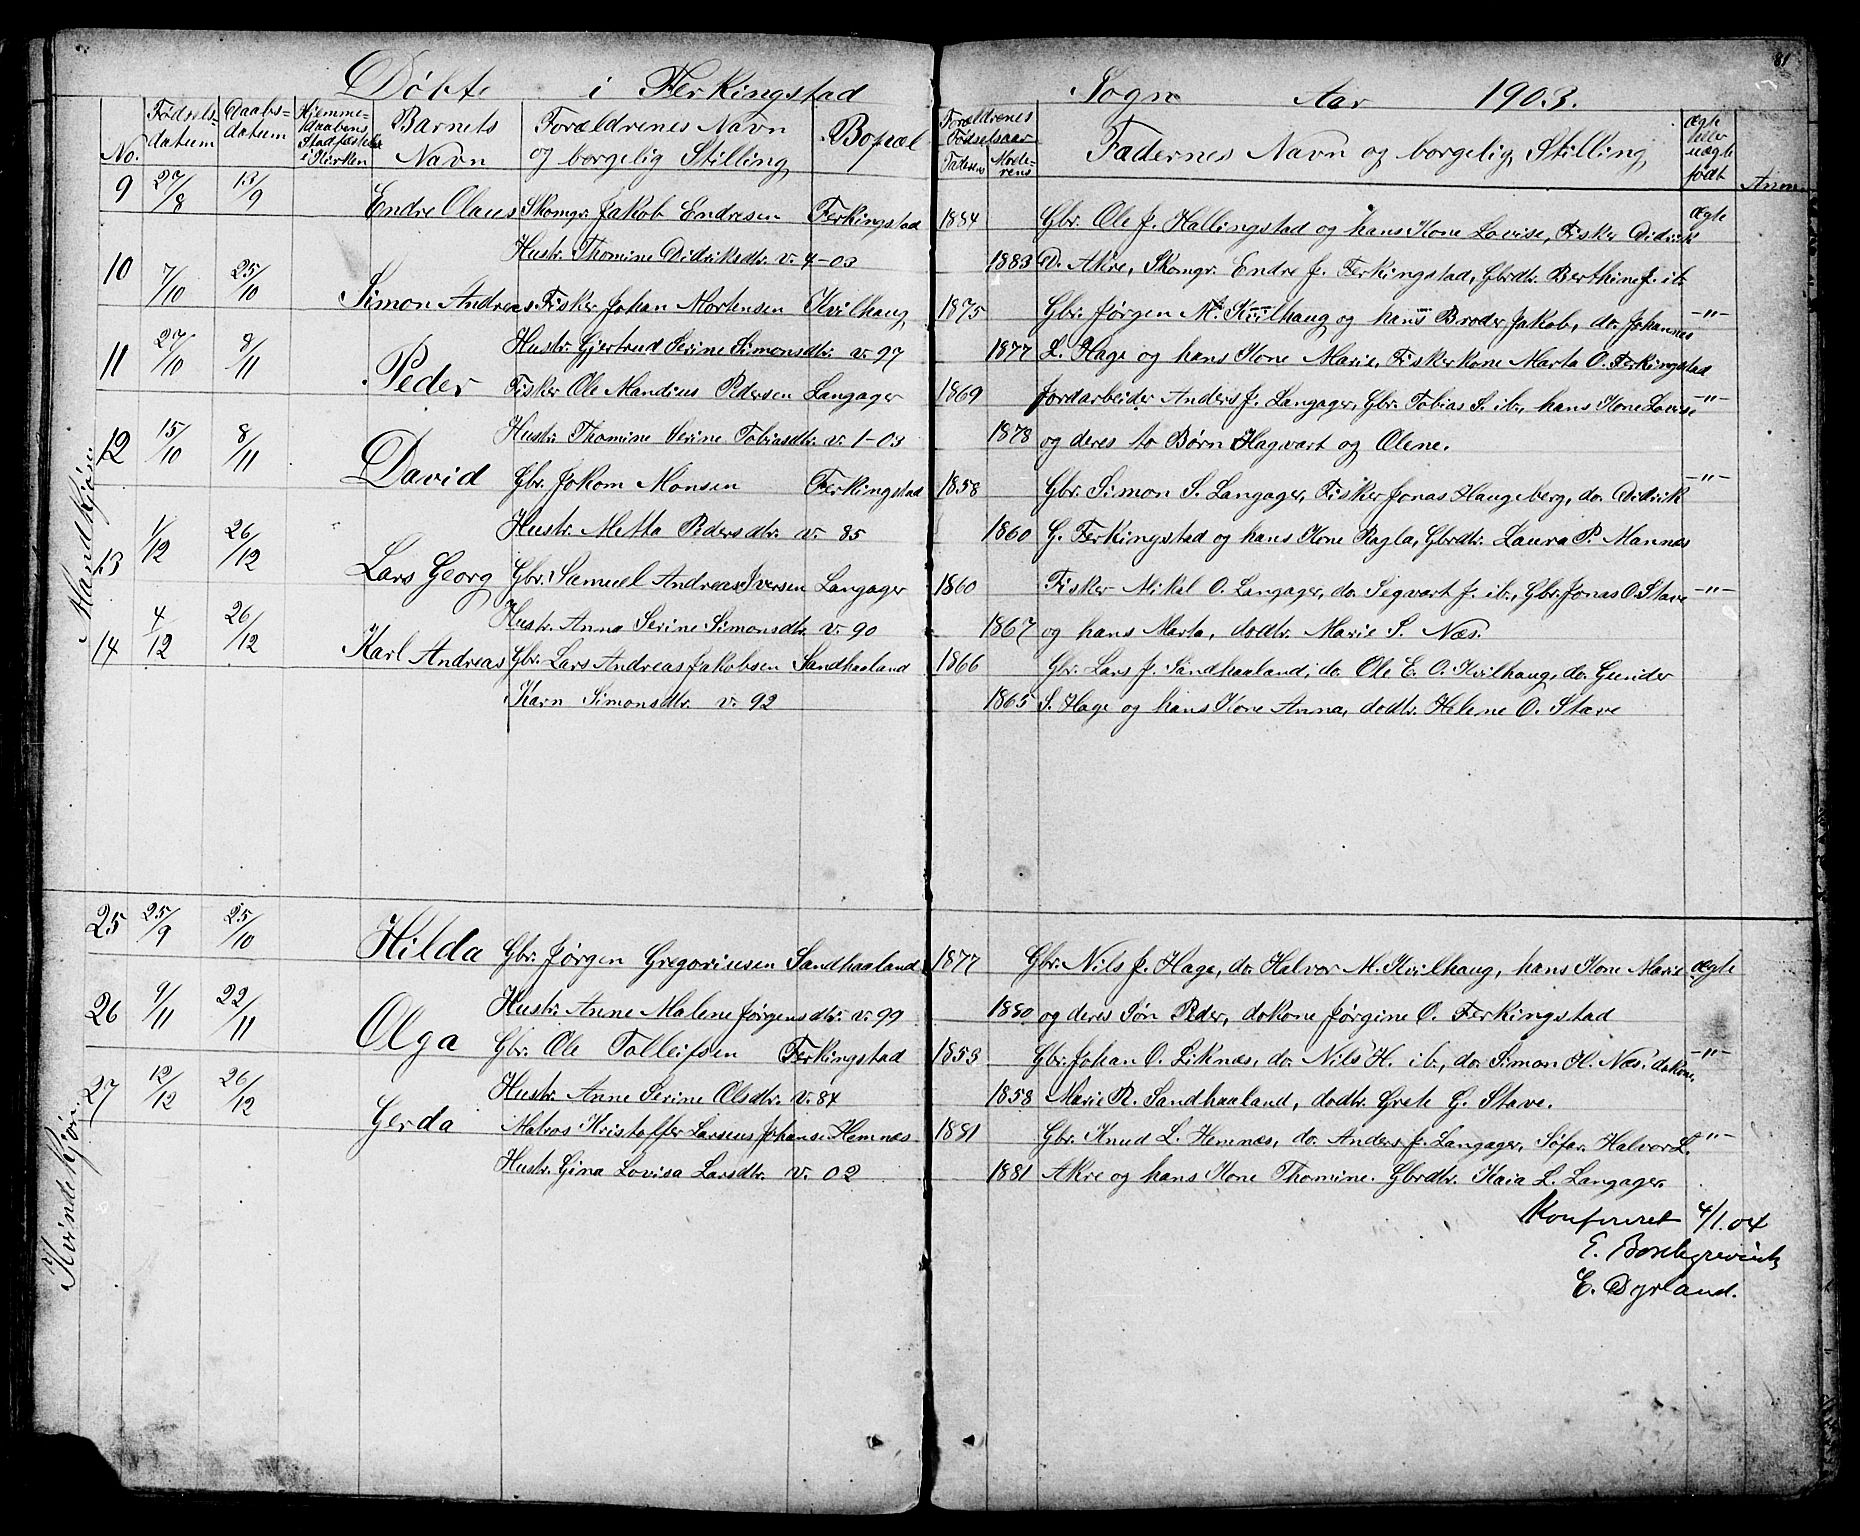 81
Döbte i Ferkingstad Sogn Aar 1903.
No. Födsels-datum Daabs-datum Hjemme-daabens Stadfæstelse i Kirken Barnets Navn Forældrenes Navn og borgelig Stilling Bopæl Forældrenes Födselsaar Faderens Moderens Fædernes Navn og borgelig Stilling Ægte eller uægte födt Anm
Mandkjøn
9 27/8 13/9 Endre Olaus Skomgr. Jakob Endresen Ferkingstad 1884 Gbr. Ole J. Hallingstad og hans Kone Lovise, Fisker Didrik ægte
Hustr. Thomine Didriksdtr. v. 4-03 1883 D. Akre, Skomgr. Endre J. Ferkingstad, Gbrdtr. Berthine J. ib.
10 7/10 25/10 Simon Andreas Fisker Johan Mortensen Kvilhaug 1875 Gbr. Jørgen M. Kvilhaug og hans Broder Jakob, do. Johannes -"-
Hustr. Gjertrud Serine Simonsdtr. v. 97 1877 L. Hage og hans Kone Marie, Fiskerkone Marta O. Ferkingstad
11 27/10 8/11 Peder Fisker Ole Mandius Pedersen Langager 1869 Jordarbeider Anders J. Langager, Gbr. Tobias S. ib., hans Kone Lovise -"-
Hustr. Thomine Serine Tobiasdtr. v. 1-03 1878 og deres to Børn Hagvart og Olene.
12 15/10 8/11 David Gbr. Jokom Monsen Ferkingstad 1858 Gbr. Simon S. Langager, Fisker Jonas Haugeberg, do. Didrik -"-
Hustr. Metta Pedersdtr. v. 85 1860 G. Ferkingstad og hans Kone Ragla, Gbrdtr. Laura P. Mannes
13 1/12 26/12 Lars Georg Gbr. Samuel Andreas Iversen Langager 1860 Fisker Mikal O. Langager, do. Segvart J. ib., Gbr. Jonas O. Stave -"-
Hustr. Anna Serine Simonsdtr. v. 90 1867 og hans Marta, dodtr. Marie S. Næs.
14 4/12 26/12 Karl Andreas Gbr. Lars Andreas Jakobsen Sandhaaland 1866 Gbr. Lars J. Sandhaaland, do. Ole E. O. Kvilhaug, do. Gunder
Karn Simonsdtr. v. 92 1865 S. Hage og hans Kone Anna, dodtr. Helene O. Stave
Kvindekjøn.
25 25/9 25/10 Hilda Gbr. Jørgen Gregoriusen Sandhaaland 1877 Gbr. Nils J. Hage, do. Halvor M. Kvilhaug, hans Kone Marie ægte
Hustr. Anne Malene Jørgensdtr. v. 99 1880 og deres Søn Peder, dokone Jørgine O. Ferkingstad
26 9/11 22/11 Olga Gbr. Ole Tolleifsen Ferkingstad 1853 Gbr. Johan O. Liknæs, do. Nils H. ib., do. Simon H. Næs, dokone, -"-
Hustr. Anne Serine Olsdtr. v. 84 1858 Marie R. Sandhaaland, dodtr. Grete G. Stave.
27 12/12 26/12 Gerda Matros Kristoffer Larsens Johans. Hemnæs 1881 Gbr. Knud L. Hemnæs, do. Anders J. Langager, Søfar. Halvor L. -"-
Hustr. Gina Lovisa Larsdtr. v. 02 1881 Akre og hans Kone Thomine. Gbrdtr. Kaia L. Langager.
Konfereret 4/1.04
E. Borchgrevink
E. Dyrland.